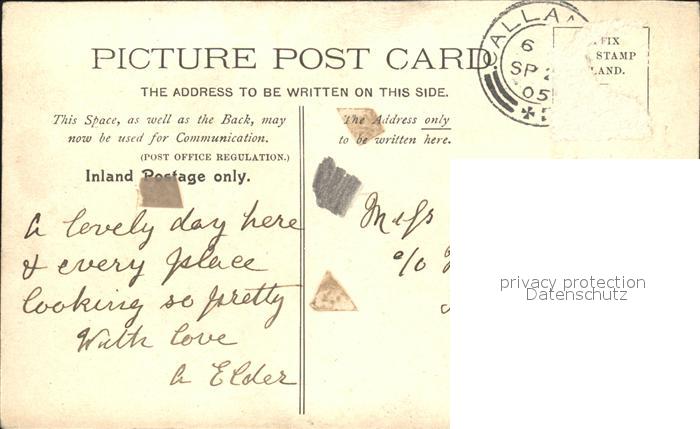 PICTURE POST CARD
THE ADDRESS TO BE WRITTEN ON THIS SIDE.
This Space, as well as the Back, may
now be used for Communication.
(POST OFFICE REGULATION.)
Inland Postage only.
The Address only
to be written here.
FIX
STAMP
LAND.
CALLAN
6
SP 2
05
A lovely day here
& every place
looking so pretty
With love
A Elder
Miss
c/o
privacy protection
Datenschutz